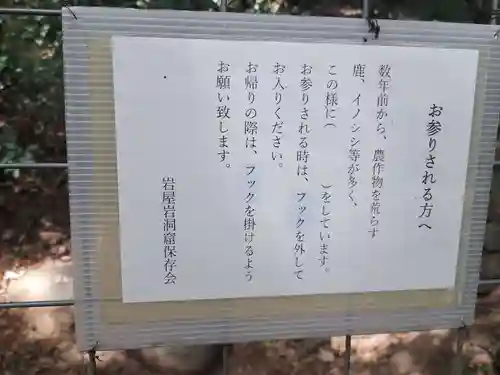 お参りされる方へ
数年前から、農作物を荒らす
鹿、イノシシ等が多く、
この様に(　　　)をしています。
お参りされる時は、フックを外して
お入りください。
お帰りの際は、フックを掛けるよう
お願い致します。
岩屋岩洞窟保存会